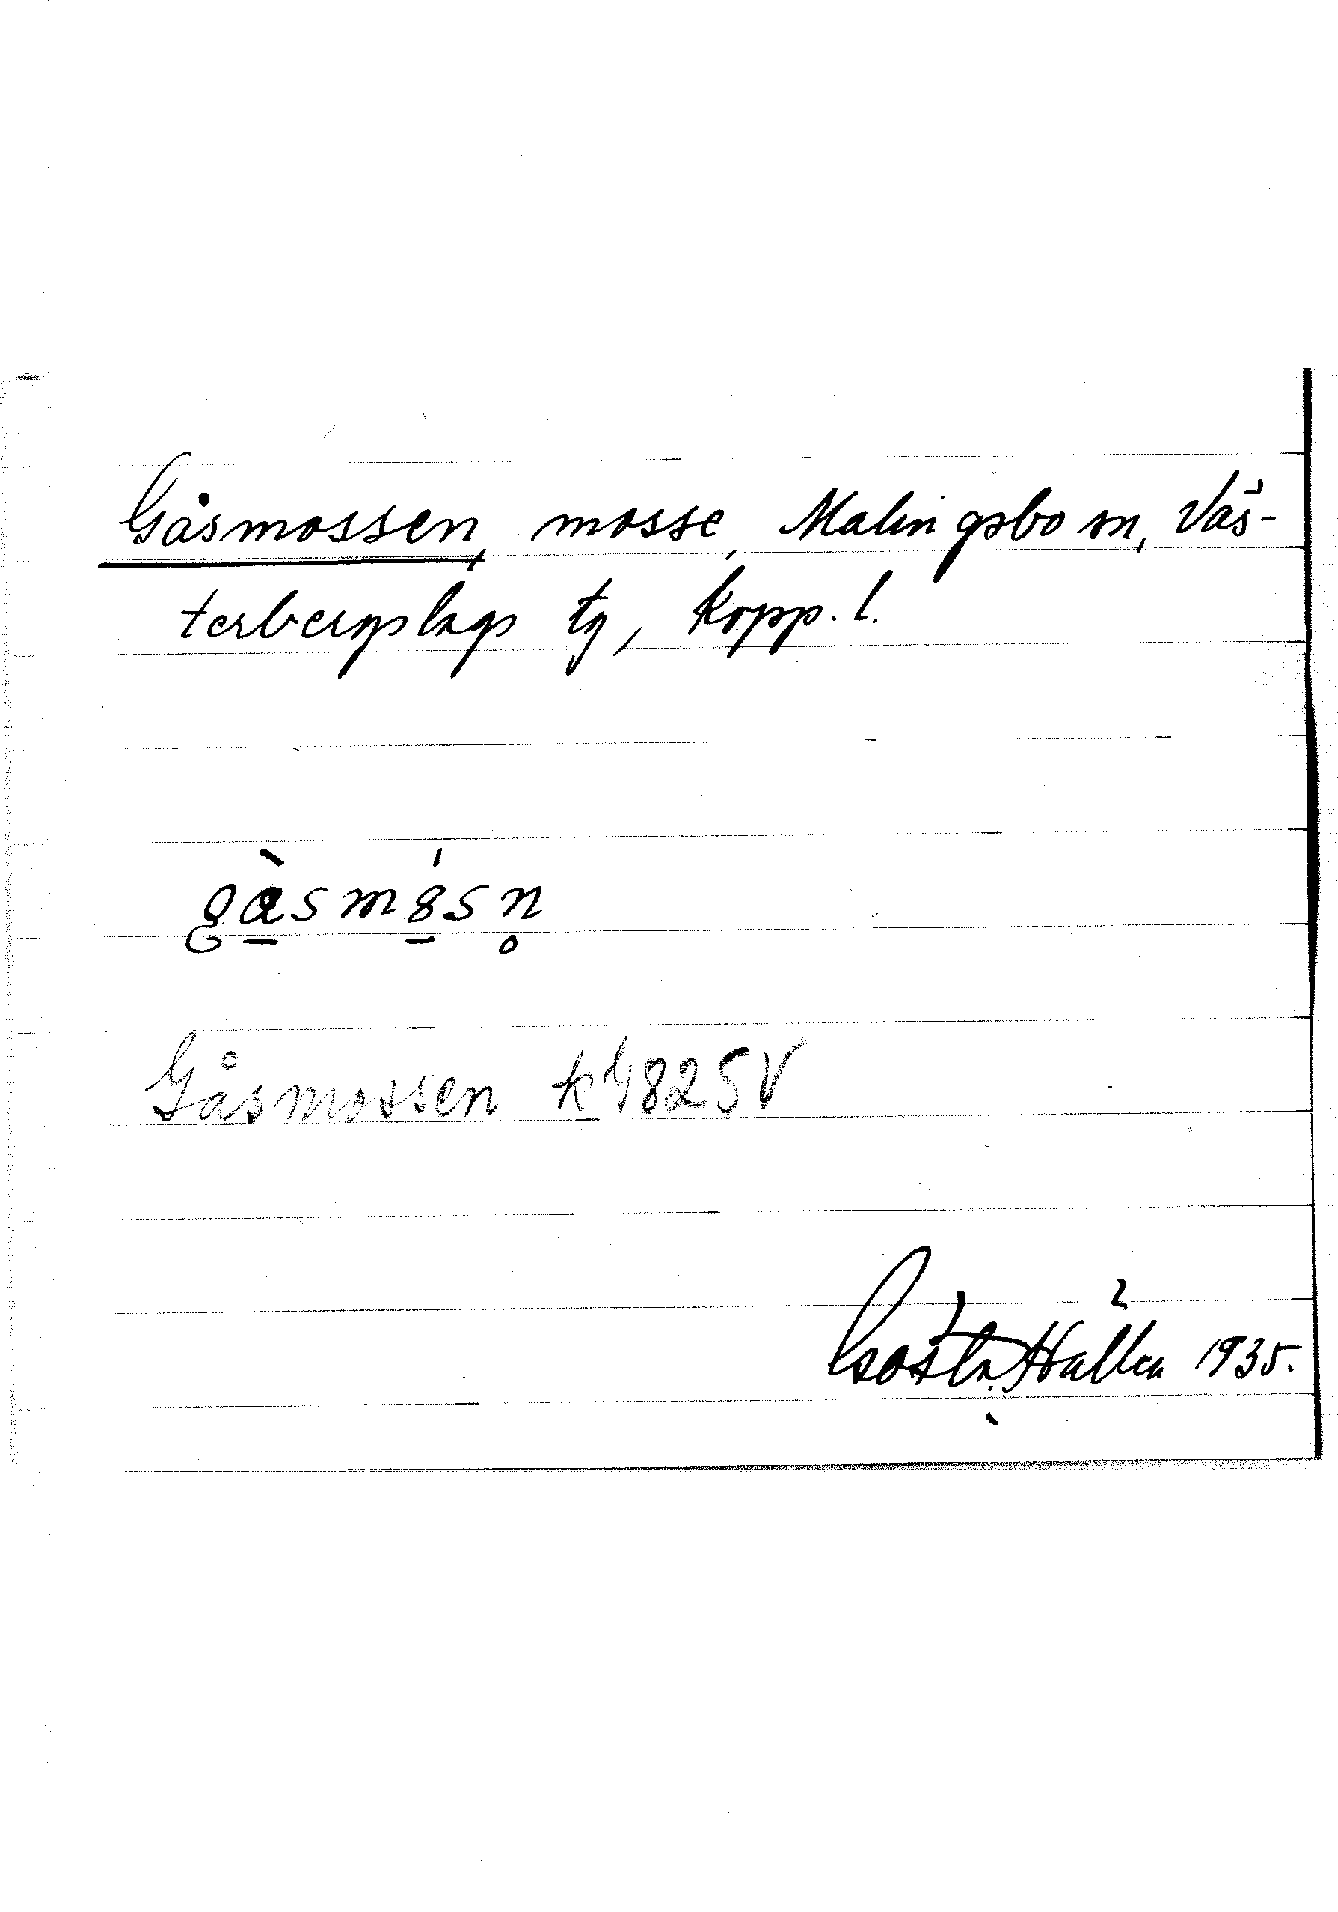 Gåsmossen, mosse, Malingsbo sn, Väs-
terbergslags tg, Kopp. l.
gàsmósn̥
Gåsmossen k4825V
Gösta Hallén 1935.